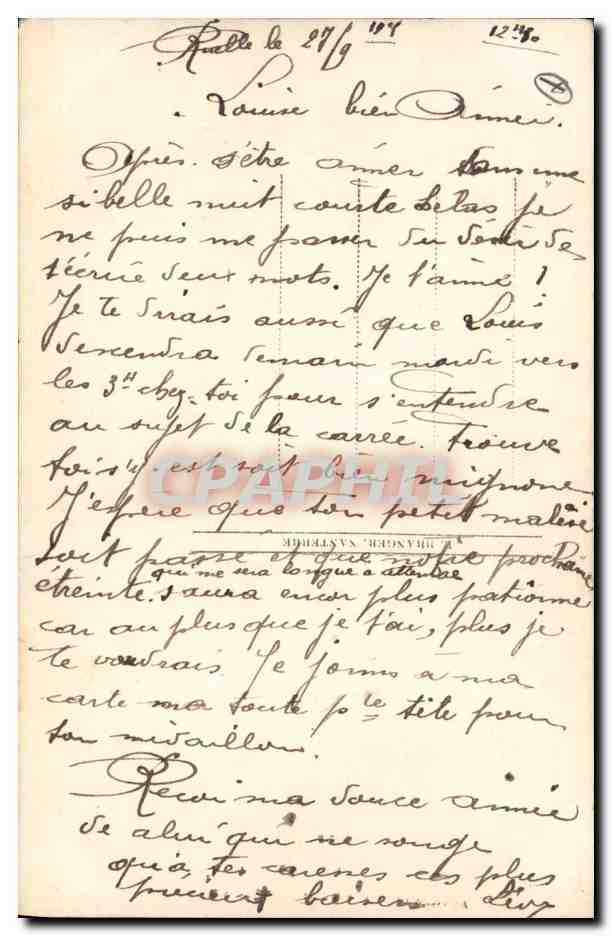 Ruelle le 27/9
12
Louise bien Aimée.
Après s'être aimer dans une
si belle nuit courte helas je
ne puis me passer du désir de
t'écrire deux mots. Je t'aime !
Je te dirais aussi que Louis
descendra demain mardi vers
les 3H chez-toi pour s'entendre
au sujet de la carrée. Trouve
toi s'y est soit bien mignone
CPAPHIL
J'espere que ton petit malaise
BRANGER, NANTERRE
soit passé et que notre prochaine
qui me sera longue a attendre
étreinte saura encor plus
car au plus que je t'ai, plus je
te voudrais. Je joins à ma
carte ma toute pte tête pour
ton médaillon.
Recoi ma douce aimée
de celui qui ne songe
qu'à tes caresses ces plus
baisers